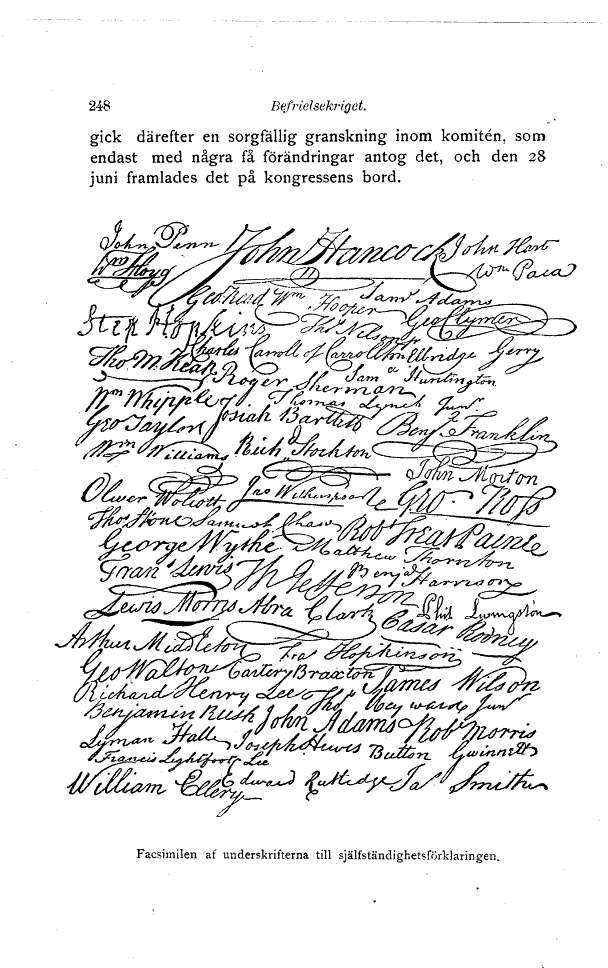 248 Befrielsekriget.
gick därefter en sorgfällig granskning inom komitén, som
endast med några få förändringar antog det, och den 28
juni framlades det på kongressens bord.
John Penn John Hancock John Hart
Wm Floyd Wm Paca
Geo Read Wm Hooper Saml Adams
Step Hopkins Thos Nelson jr Geo Clymer
Charles Carroll of Carrollton Elbridge Gerry
Tho M. Kean Roger Sherman Saml Huntington
Wm Whipple Thomas Lynch Junr
Geo Taylor Josiah Bartlett Benj. Franklin
Wm Williams Richd Stockton
John Morton
Oliver Wolcott Jno Witherspoon Geo. Ross
Thos Stone Samuel Chase Robt Treat Paine
George Wythe Matthew Thornton
Frans Lewis Th Jefferson Benj Harrison
Lewis Morris Abra Clark Phil Livingston
Cæsar Rodney
Arthur Middleton Fras Hopkinson
Geo Walton Carter Braxton James Wilson
Richard Henry Lee Thos Heyward Junr
Benjamin Rush John Adams Robt Morris
Lyman Hall Joseph Hewes Button Gwinnett
Francis Lightfoot Lee
William Ellery Edward Rutledge Jas Smith
Facsimilen af underskrifterna till själfständighetsförklaringen.